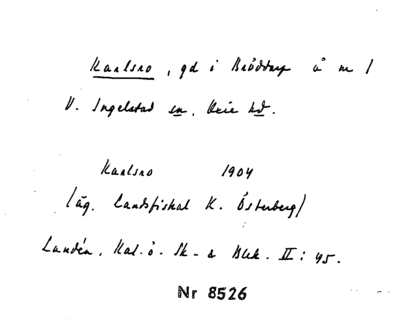 Karlsro, gd i Bröddarp å m /
V. Ingelstad sn, Oxie hd.
Karlsro 1904
/äg. Landsfiskal K. Österberg/
Lundén, Kal. ö. Sk- & Blek. II: 45.
Nr 8526